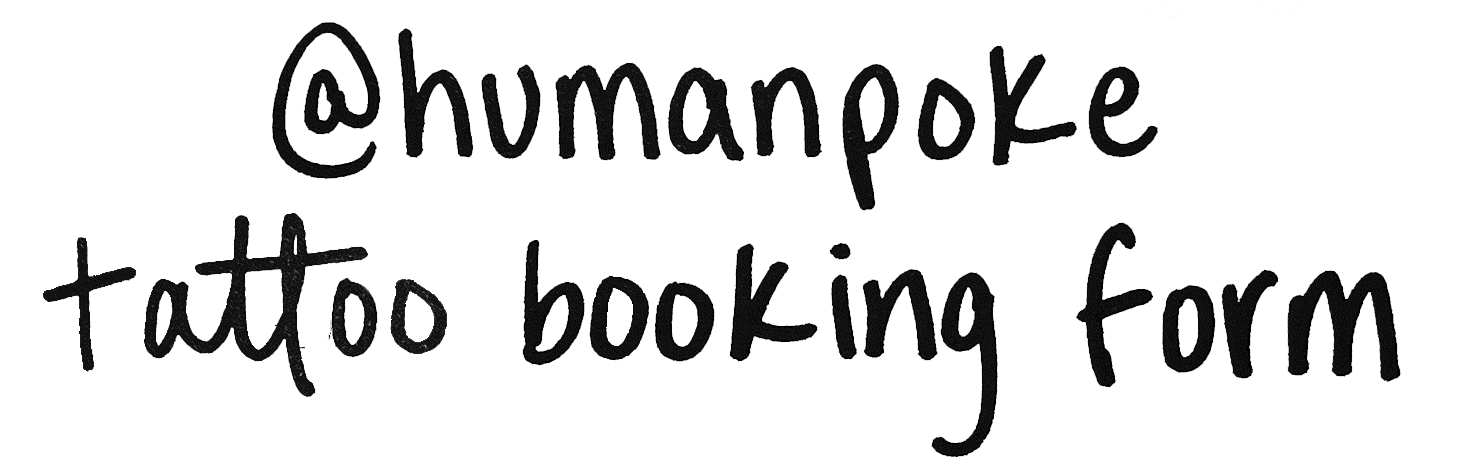 @humanpoke
tattoo booking form